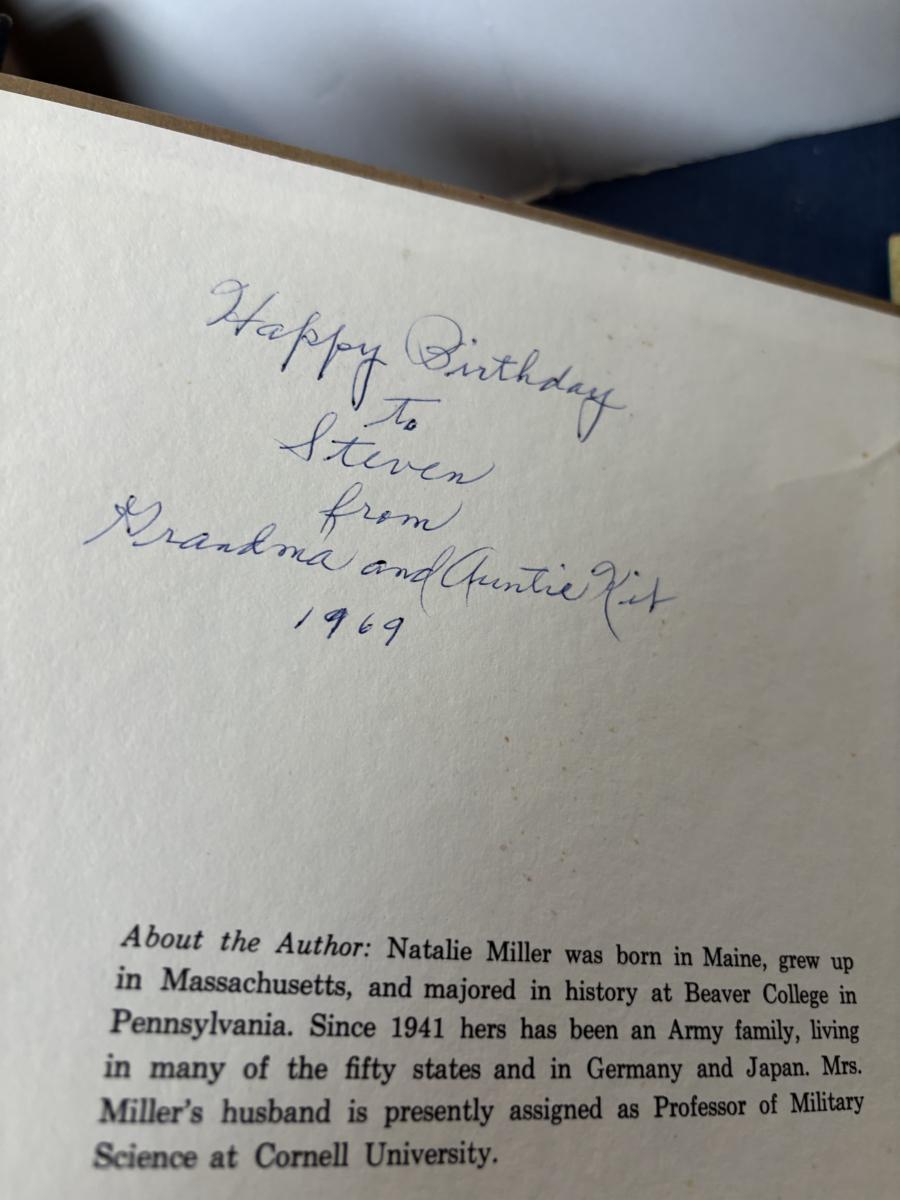 Happy Birthday
to
Steven
from
Grandma and Auntie Kit
1969
About the Author: Natalie Miller was born in Maine, grew up
in Massachusetts, and majored in history at Beaver College in
Pennsylvania. Since 1941 hers has been an Army family, living
in many of the fifty states and in Germany and Japan. Mrs.
Miller's husband is presently assigned as Professor of Military
Science at Cornell University.